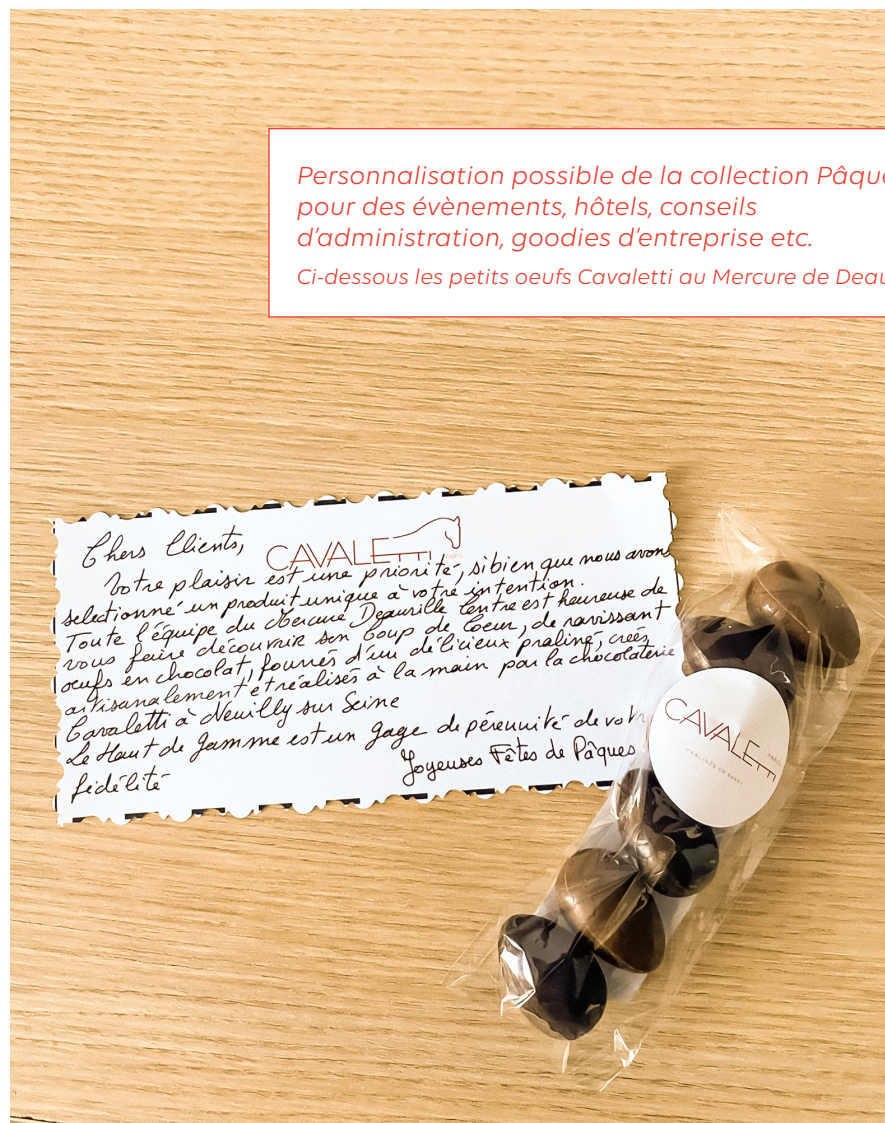 Personnalisation possible de la collection Pâque
pour des évènements, hôtels, conseils
d'administration, goodies d'entreprise etc.
Ci-dessous les petits oeufs Cavaletti au Mercure de Deau
Chers Clients,
CAVALETTI
Votre plaisir est une priorité, si bien que nous avons
selectionné un produit unique à votre intention.
Toute l'équipe du Mercure Deauville Centre est heureuse de
vous faire découvrir son Coup de Coeur, de ravissant
oeufs en chocolat, fourrés d'un délicieux praliné, créés
artisanalement et réalisés à la main par la chocolaterie
Cavaletti à Neuilly sur Seine
Le Haut de Gamme est un gage de pérennité de votre
fidélité
Joyeuses Fêtes de Pâques
CAVALETTI
PARIS
PRALINÉS EN BARRE